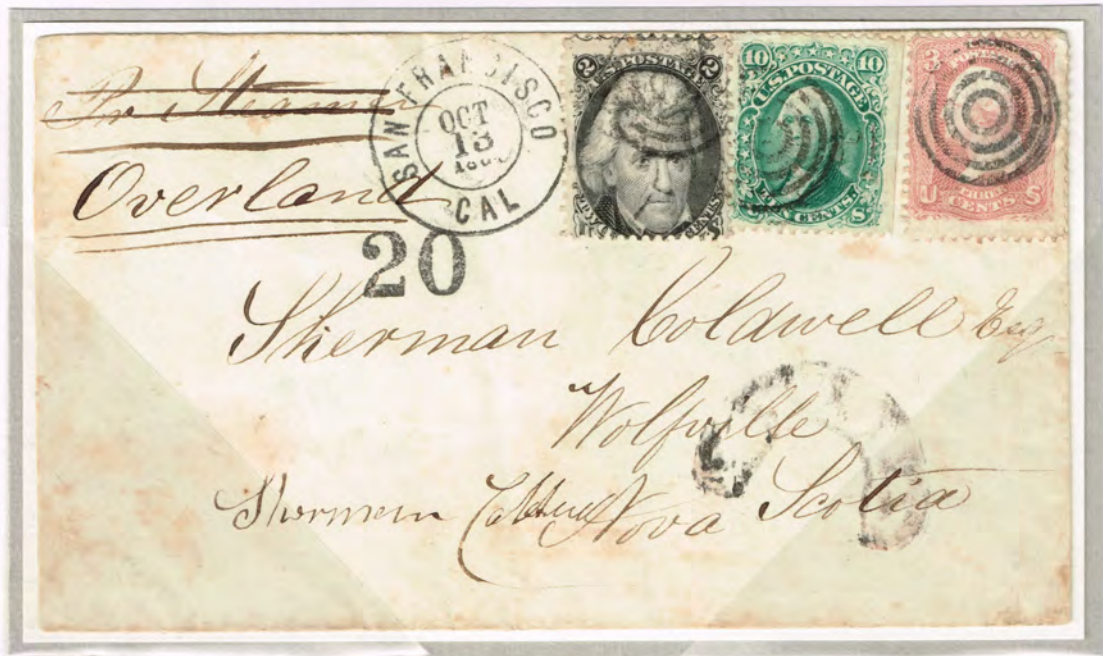 Pr Steamer
Overland
SAN FRANCISCO
OCT
13
CAL
20
2 2
U.S. POSTAGE
10 10
U.S. POSTAGE
TEN CENTS
3
U THREE S
CENTS
Sherman Coldwell Esq
Wolfville
Nova Scotia
Sherman